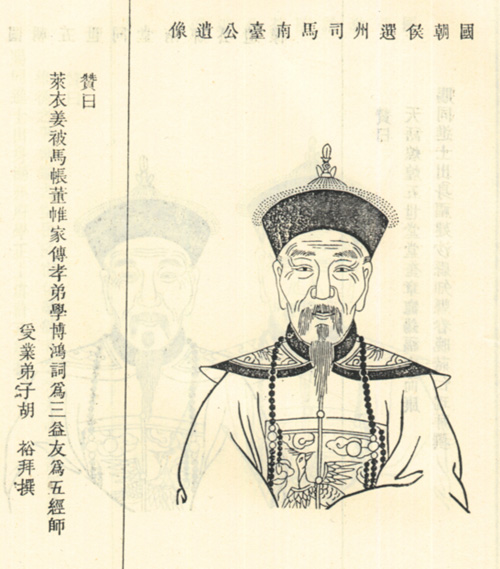 國朝侯選州司馬南臺公遺像
贊曰
萊衣姜被馬帳董帷家傳孝弟學博鴻詞爲三益友爲五經師
受業弟子胡　裕拜撰